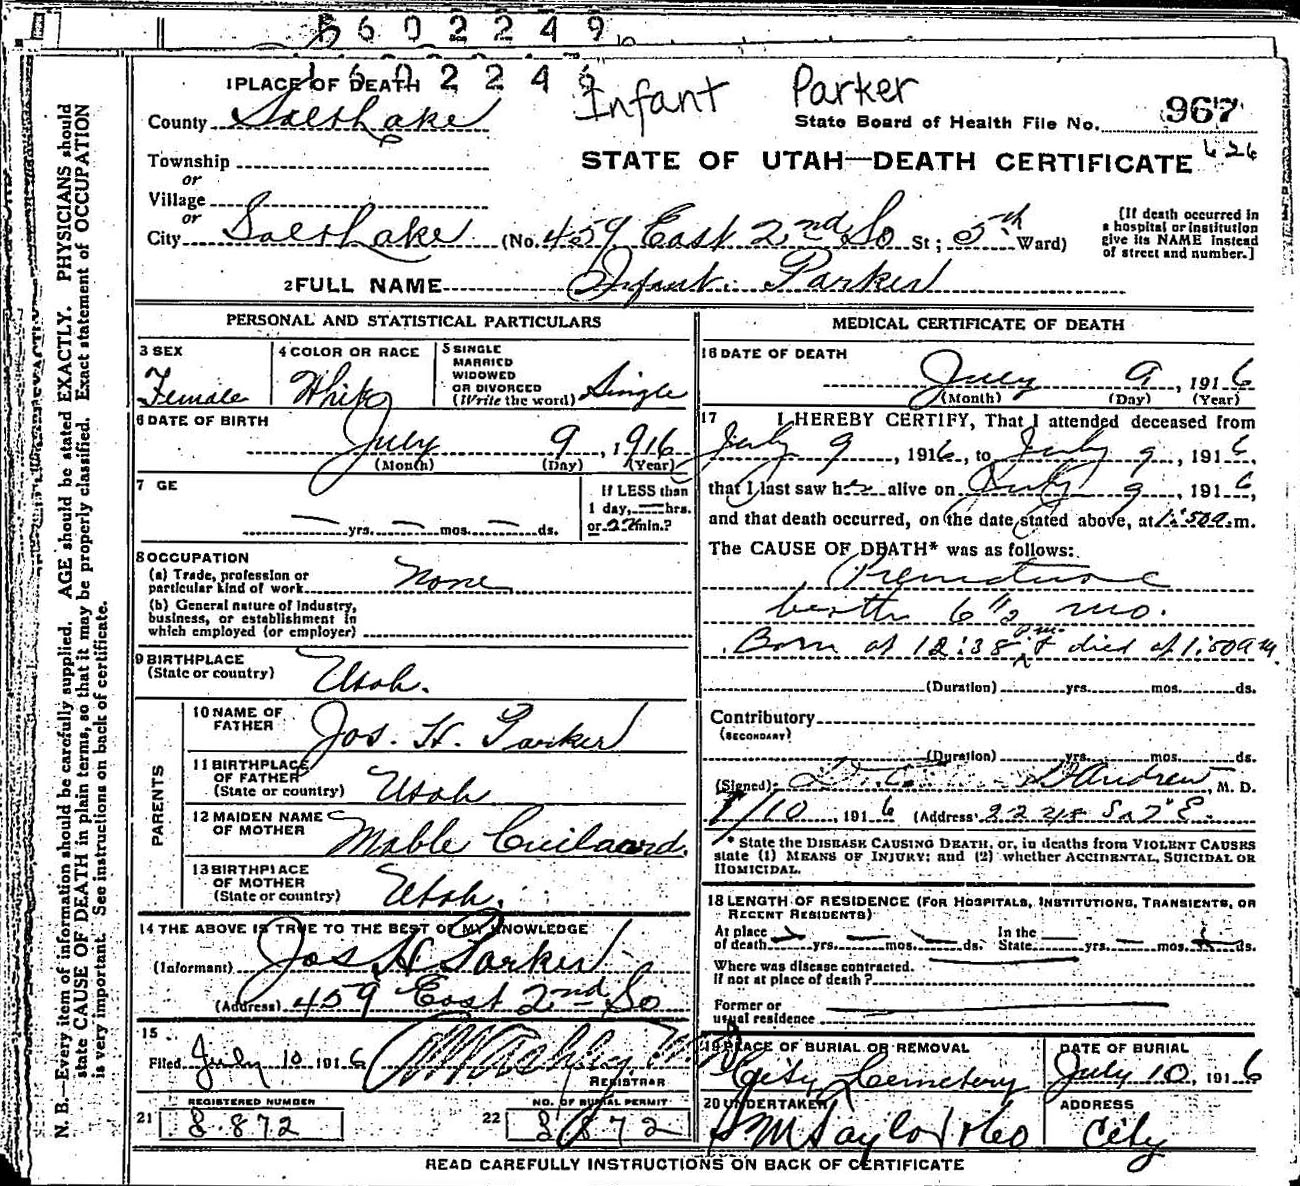 602249
602249
1 PLACE OF DEATH
Infant Parker
County Salt Lake
State Board of Health File No. 967
626
Township
STATE OF UTAH—DEATH CERTIFICATE
or
Village
or
City Salt Lake (No. 459 East 2nd So St; 5th Ward)
[If death occurred in
a hospital or institution
give its NAME instead
of street and number.]
2 FULL NAME Infant. Parker
PERSONAL AND STATISTICAL PARTICULARS
3 SEX
Female
4 COLOR OR RACE
White
5 SINGLE
MARRIED
WIDOWED
OR DIVORCED
(Write the word) Single
6 DATE OF BIRTH
July 9, 1916
(Month) (Day) (Year)
7 GE
— yrs. — mos. — ds.
If LESS than
1 day, — hrs.
or 22 min.?
8 OCCUPATION
(a) Trade, profession or
particular kind of work None
(b) General nature of Industry,
business, or establishment in
which employed (or employer)
9 BIRTHPLACE
(State or country) Utah.
PARENTS
10 NAME OF
FATHER Jos. H. Parker
11 BIRTHPLACE
OF FATHER
(State or country) Utah
12 MAIDEN NAME
OF MOTHER Mable
13 BIRTHPLACE
OF MOTHER
(State or country) Utah.
14 THE ABOVE IS TRUE TO THE BEST OF MY KNOWLEDGE
(Informant) Jos H Parker
(Address) 459 East 2nd So
15
Filed July 10 1916
REGISTRAR
REGISTERED NUMBER
21 8872
NO. OF BURIAL PERMIT
22 8872
MEDICAL CERTIFICATE OF DEATH
16 DATE OF DEATH
July 9, 1916
(Month) (Day) (Year)
17 I HEREBY CERTIFY, That I attended deceased from
July 9, 1916, to July 9, 1916,
that I last saw her alive on July 9, 1916,
and that death occurred, on the date stated above, at 1:50a.m.
The CAUSE OF DEATH* was as follows:
Premature
birth 6 1/2 mo.
Born at 12:38 & died at 1:50am.
(Duration) yrs. mos. ds.
Contributory
(SECONDARY)
(Duration) yrs. mos. ds.
(Signed) , M. D.
7/10, 1916 (Address
* State the DISEASE CAUSING DEATH, or, in deaths from VIOLENT CAUSES
state (1) MEANS OF INJURY; and (2) whether ACCIDENTAL, SUICIDAL OR
HOMICIDAL.
18 LENGTH OF RESIDENCE (FOR HOSPITALS, INSTITUTIONS, TRANSIENTS, OR
RECENT RESIDENTS)
At place
of death yrs. mos. ds.
In the
State yrs. mos. ds.
Where was disease contracted.
if not at place of death?
Former or
usual residence
19 PLACE OF BURIAL OR REMOVAL
City Cemetery
DATE OF BURIAL
July 10, 1916
20 UNDERTAKER
S M Taylor & Co
ADDRESS
City
READ CAREFULLY INSTRUCTIONS ON BACK OF CERTIFICATE
N. B.—Every item of information should be carefully supplied. AGE should be stated EXACTLY. PHYSICIANS should
state CAUSE OF DEATH in plain terms, so that it may be properly classified. Exact statement of OCCUPATION
is very important. See instructions on back of certificate.